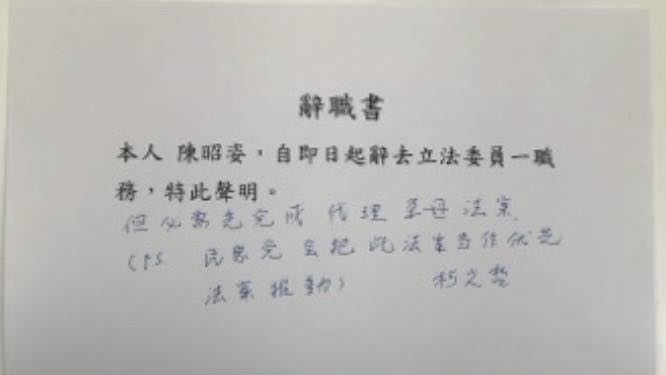 辭職書
本人 陳昭姿，自即日起辭去立法委員一職
務，特此聲明。
但必需先完成 代理孕母法案
(PS 民眾党会把此法案当作优先
法案推動)  柯文哲